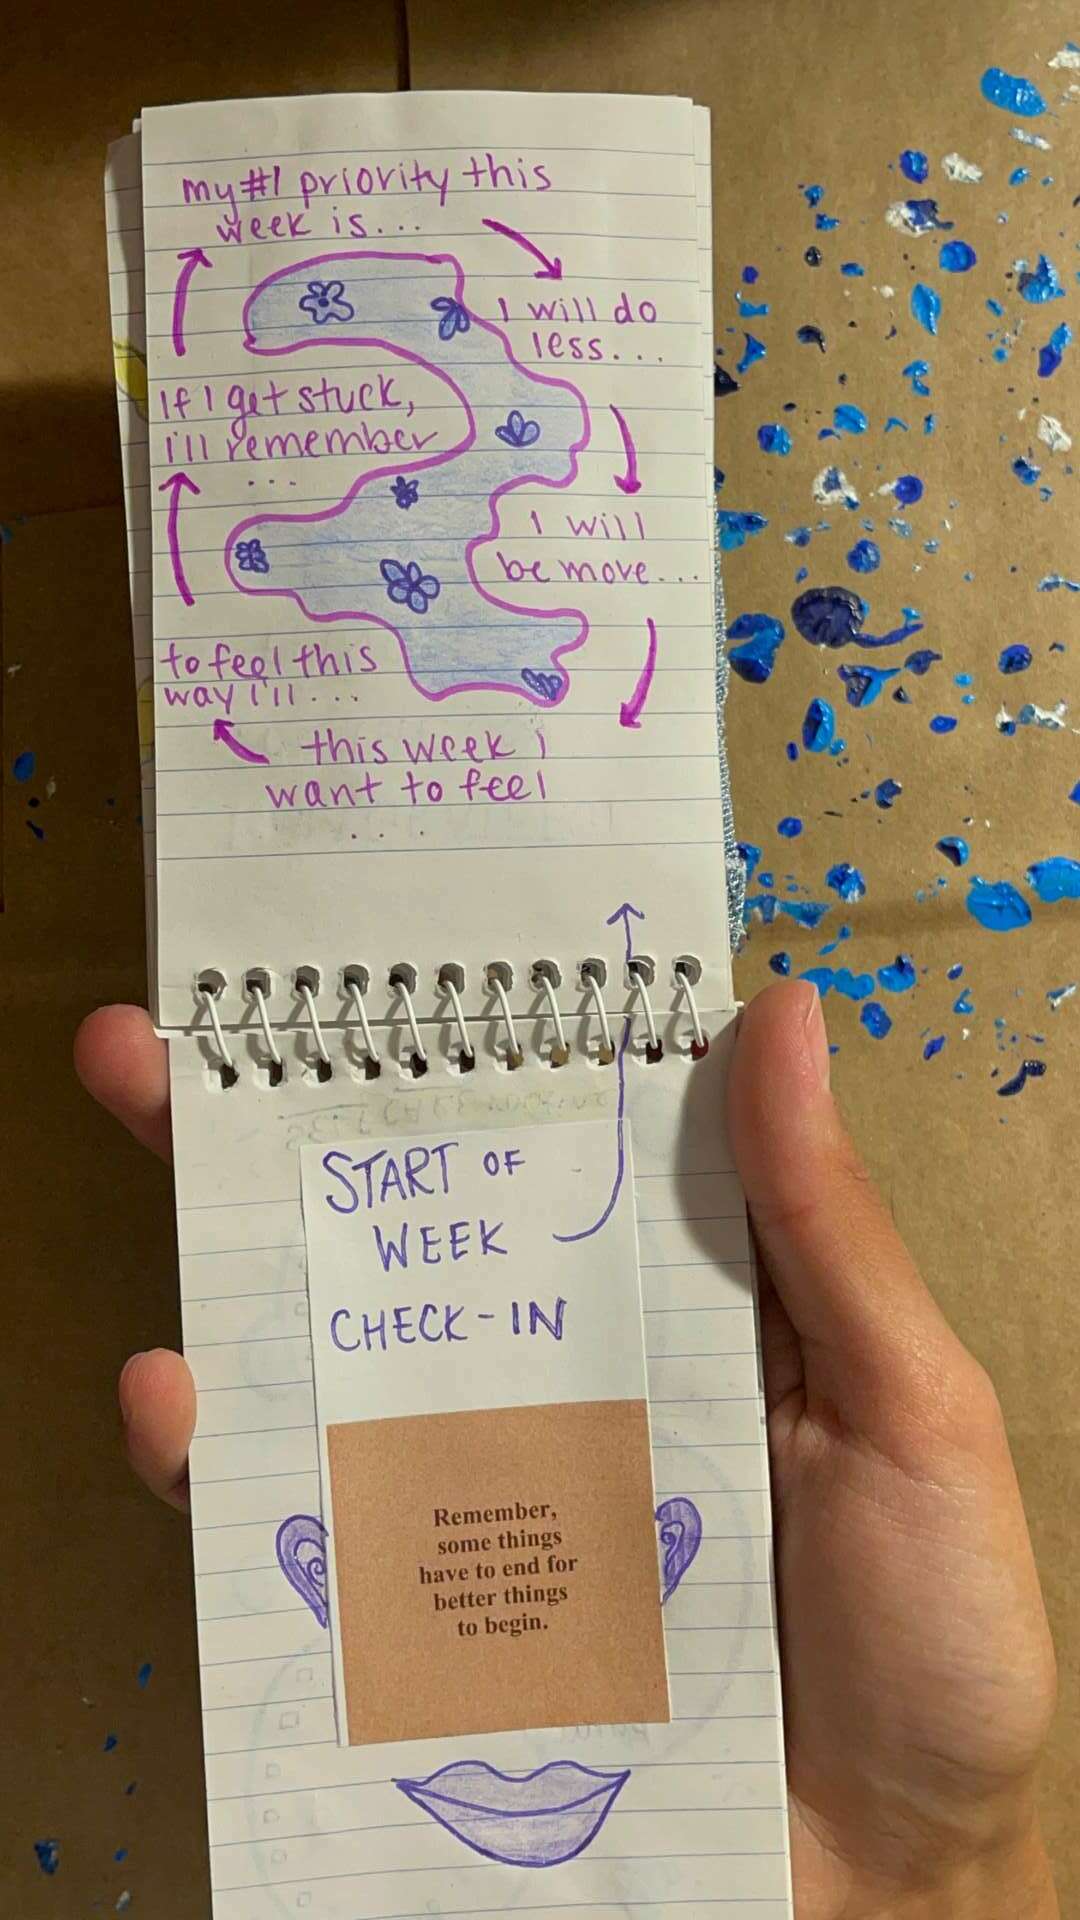 my #1 priority this
week is...
I will do
less...
If I get stuck,
i'll remember
...
I will
be more...
to feel this
way I'll...
this week i
want to feel
....
START OF
WEEK
CHECK-IN
Remember,
some things
have to end for
better things
to begin.